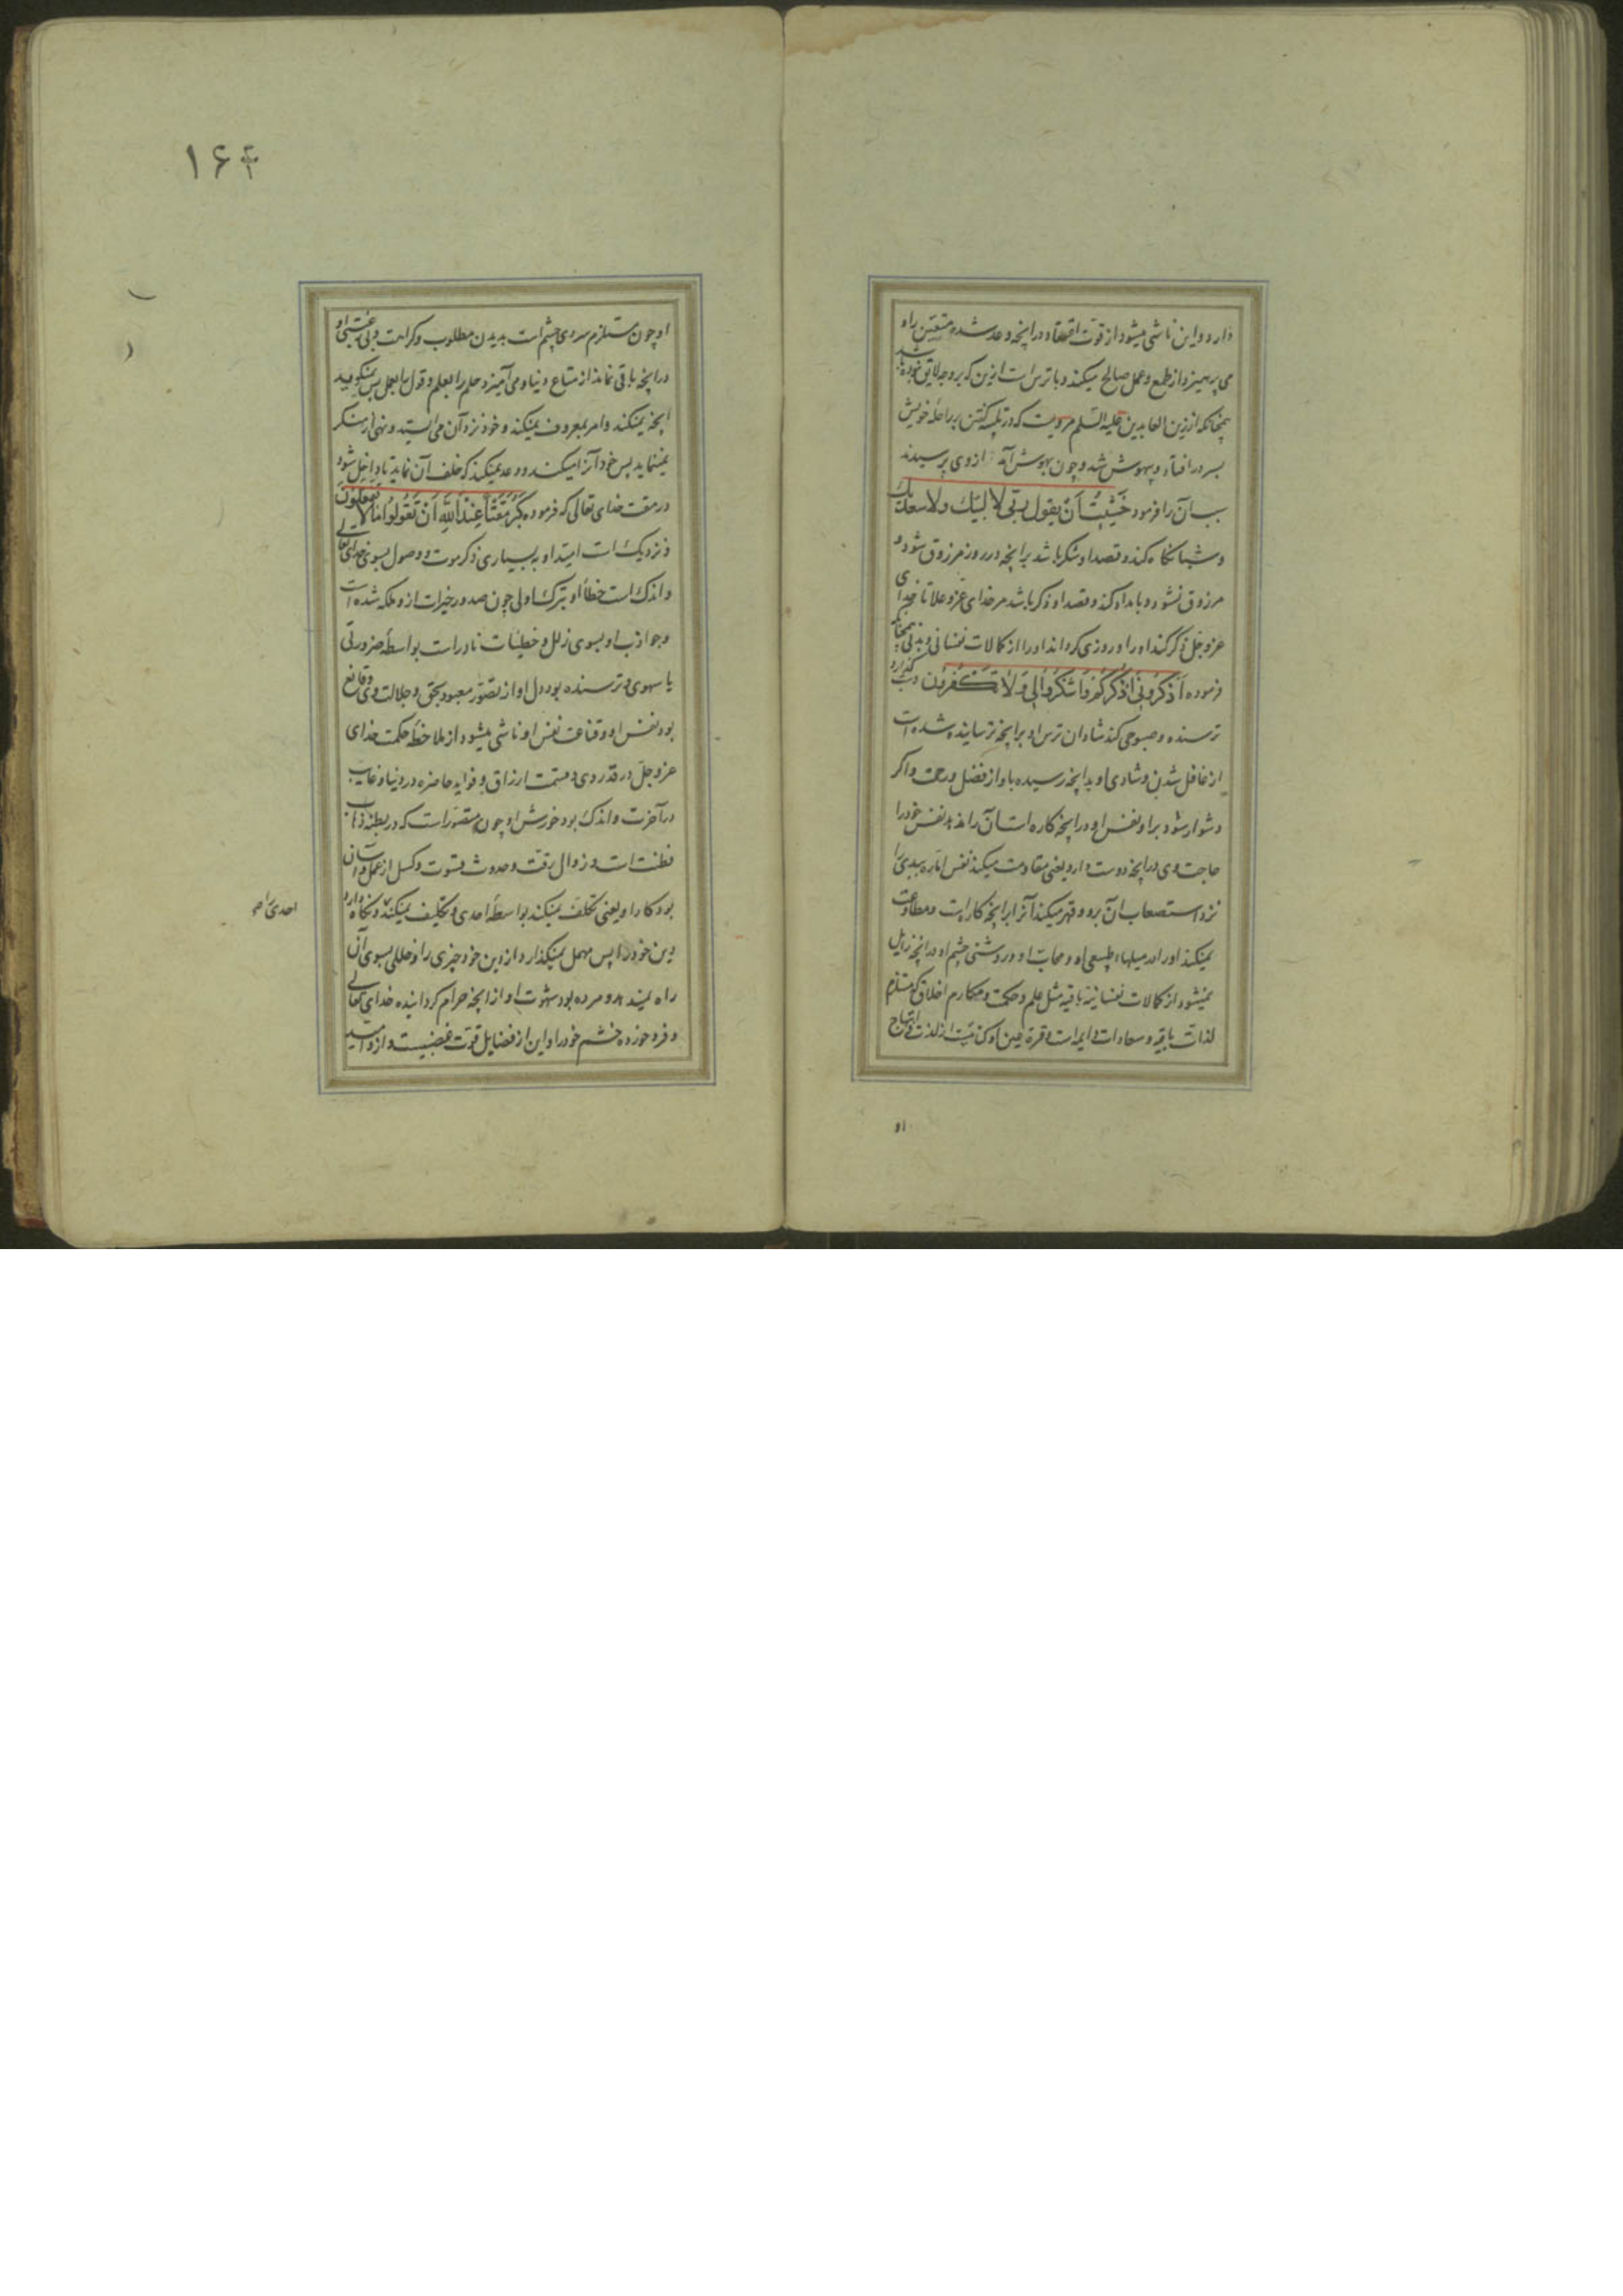 دارد و این ناشی میشود از قوت اعتقاد در انچه وعد شده متقین را و
می پرهیزد از طمع و عمل صالح میکند و با ترس است ازین که بر وجه لایق نبوده باشد
همچنانکه از زین العابدین علیه السلم مرویست که در تلبیه گفتن بر راحلهٔ خویش
بسر در افتاد و بیهوش شد و چون بهوش آمد از وی پرسیدند
سبب آن را فرمود خَشِیتُ اَنْ یقول ربّی لا لبّیك ولا سعدیك
و شبانگاه کند و قصد او شکر باشد بر انچه در روز مرزوق شود و
مرزوق نشود و بامداد کند و قصد او ذکر باشد مر خدای عزّ و علا تا خدای
عز و جلّ ذکر کند او را و روزی گرداند او را از کمالات نفسانی و بدنی همچنانکه
فرموده اَذکُرُونی اَذْکُرْکُم وَاشْکُرُوا لی وَلا تَکْفُرُون و شب گذارد
ترسنده و صبوحی کند شادان ترس او بر انچه ترسانیده شده است
از غافل شدن و شادی او بدانچه رسیده باو از فضل و رحمت و اگر
دشوار شود بر او نفس او در انچه کاره است آن را ندهد نفس خود را
حاجت وی در انچه دوست دارد یعنی مقاومت میکند نفس امّاره ببدی را
نزد استصعاب آن برو و قهر میکند آنرا بر انچه کارهست و مطاوعت
نمیکند او را در میلهاء طبیعی او و محابّ او و روشنی چشم او در انچه زایل
نمیشود از کمالات نفسانیّه باقیه مثل علم و حکمت و مکارم اخلاق که مستلزم
لذات باقیه و سعادات دایمه است و قرة عین او کنایتست از لذت و ابتهاج
او
۱۶۴
او چون مستلزم سردی چشم است بدیدن مطلوب و کراهت و بی رغبتی او
در انچه باقی نماند از متاع دنیا و می آمیزد حلم را بعلم و قول با عمل پس نمیگوید
انچه نمیکند و امر بمعروف نمیکند و خود نزد آن می ایستد و نهی از منکر
نمینماید پس خود آنرا میکند و وعد نمیکند که خلف آن نماید تا داخل شود
در مقت خدای تعالی که فرموده کَبُرَ مَقْتًا عِنْدَ اللهِ اَنْ تَقُولُوا مَا لا تفعلون
و نزدیکست امید او به بسیاری ذکر موت و وصول بسوی خدای تعالی
و اندک است خطأ او بترک اولی چون صدور خیرات از و ملکه شده است
و جواذب او بسوی زلل و خطیّات نادر است بواسطهٔ ضرورتی
یا سهوی و ترسنده بود دل او از تصوّر معبود بحق و جلالت وی و قانع
بود نفس او و قناعت نفس او ناشی میشود از ملاحظهٔ حکمت خدای
عز و جلّ در قدر وی و قسمت ارزاق و فواید حاضره در دنیا و غایب
در آخرت و اندک بود خورش او چون متصوّر است که در بطنه ذهاب
فطنت است و زوال رقّت و حدوث قسوت و کسل از عمل و آسان
بود کار او یعنی تکلف نمیکند بواسطهٔ احدی و تکلیف نمیکند و نگاه دارد
احدی را صح
دین خود را پس مهمل نمیگذارد از دین خود چیزی را و خللی بسوی آن
راه نمیدهد و مرده بود شهوت او از انچه حرام گردانیده خدای تعالی
و فرو خورده خشم خود را و این از فضایل قوّت غضبیست و ازو امید